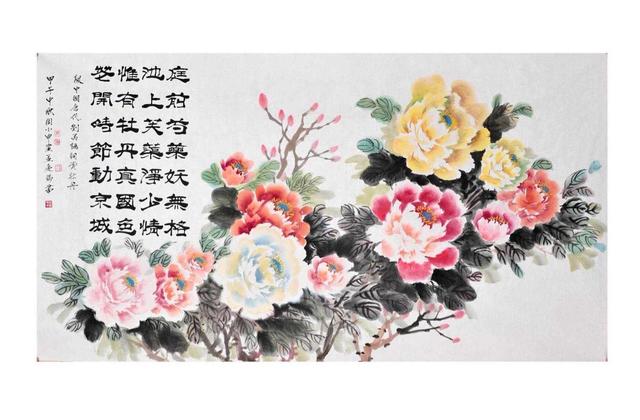 庭前芍藥妖無格
池上芙蕖淨少情
惟有牡丹真國色
花開時節動京城
中國唐代劉禹錫詞賞牡丹
甲午中秋周小